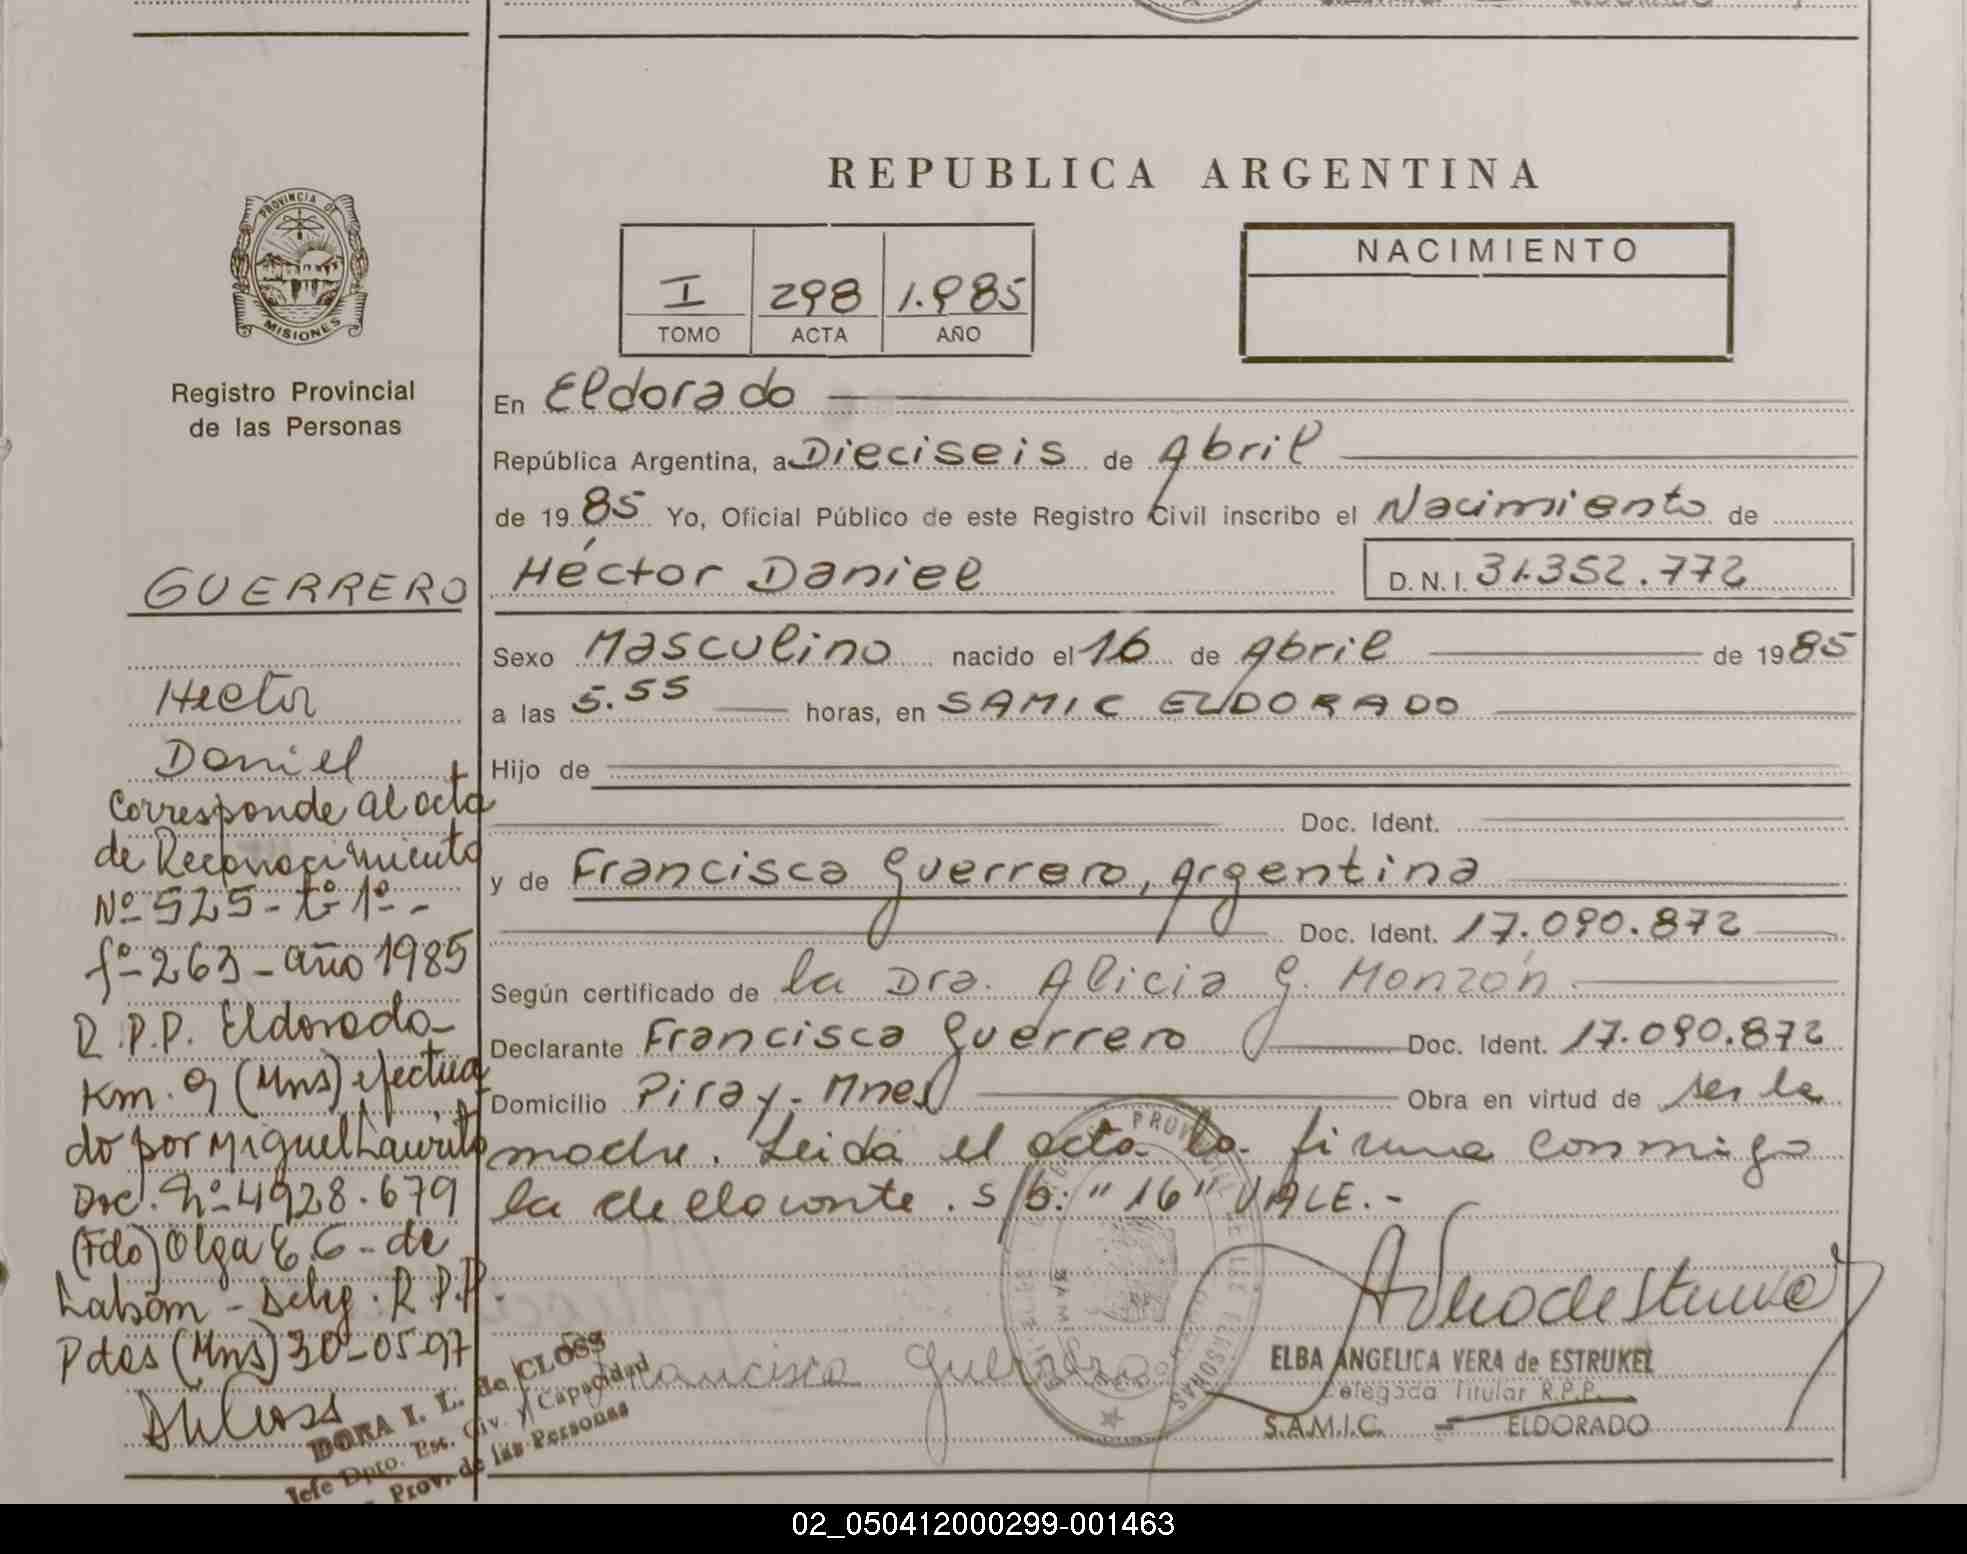 PROVINCIA DE
MISIONES
Registro Provincial
de las Personas
GUERRERO
Hector
Daniel
Corresponde al acta
de Reconocimiento
Nº 525 - tº 1º -
fº - 263 - año 1985
R.P.P. Eldorado -
Km. 9 (Mns) efectua
do por Miguel Laurito
Doc. Nº 4928.679
(Fdo) Olga E. G. de
Labam - Deleg. R.P.P.
Pdas (Mns) 30-05-97
DORA I. L. de CLOSS
Jefe Dpto. Est. Civ. y Capacidad
Prov. de las Personas
REPUBLICA ARGENTINA
I 298 1.985
TOMO ACTA AÑO
NACIMIENTO
En Eldorado
República Argentina, a Dieciseis de Abril
de 1985 Yo, Oficial Público de este Registro Civil inscribo el Nacimiento de
Héctor Daniel D.N.I. 31.352.772
Sexo Masculino nacido el 16 de Abril de 1985
a las 5.55 horas, en SAMIC ELDORADO
Hijo de
Doc. Ident.
y de Francisca Guerrero, Argentina
Doc. Ident. 17.090.872
Según certificado de la Dra. Alicia G. Monzón
Declarante Francisca Guerrero Doc. Ident. 17.090.872
Domicilio Piray - Mnes Obra en virtud de ser la
madre. Leida el acta la firma conmigo
la declarante. S/b: "16" VALE.-
Francisca Guerrero
ELBA ANGELICA VERA de ESTRUKEL
Delegada Titular R.P.P.
S.A.M.I.C. - ELDORADO
02_050412000299-001463